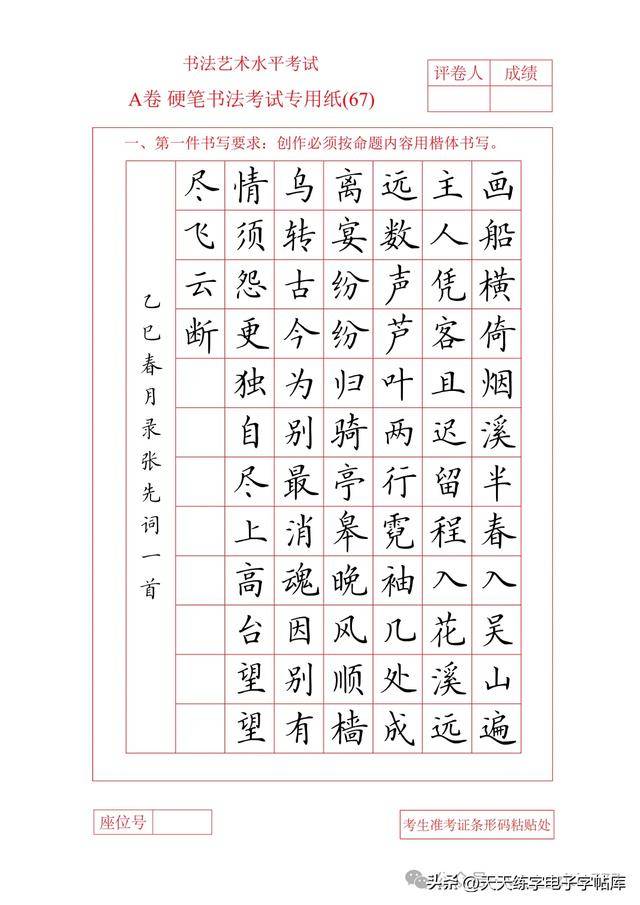 书法艺术水平考试
A卷 硬笔书法考试专用纸(67)
评卷人 成绩
一、第一件书写要求：创作必须按命题内容用楷体书写。
画船横倚烟溪半春入吴山遍
主人凭客且迟留程入花溪远
远数声芦叶两行霓袖几处成
离宴纷纷归骑亭皋晚风顺樯
乌转古今为别最消魂因别有
情须怨更独自尽上高台望望
尽飞云断
乙巳春月录张先词一首
座位号
考生准考证条形码粘贴处
头条@天天练字电子字帖库